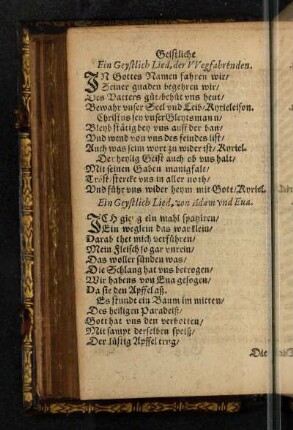 Geistliche
Ein Geystlich Lied, der VVegfahrenden.
IN Gottes Namen fahren wir/
Seiner gnaden begehren wir/
Des Vatters güt/behüt vns heut/
Bewahr vnser Seel vnd Leib/Kyrieleison.
Christus sey vnser Gleytsmann/
Bleyb stätig bey vns auff der ban/
Vnd wend von vns des feindes list/
Auch was seim wort zu wider ist/Kyriel.
Der heylig Geist auch ob vns halt/
Mit seinen Gaben manigfalt/
Tröst/stercke vns in aller noth/
Vnd führ vns wider heym mit Gott/Kyriel.
Ein Geystlich Lied, von Adam vnd Eua.
ICH gieng ein mahl spatziren/
Ein weglein das war klein/
Darab thet mich verführen/
Mein Fleisch so gar vnrein/
Das wollet sünden was/
Die Schlang hat vns betrogen/
Wir habens von Eua gesogen/
Da sie den Apffel aß.
Es stundt ein Baum im mitten/
Des heiligen Paradeiß/
Gott hat vns den verbotten/
Mit sampt derselben speiß/
Der lüstig Apffel trug/
Die